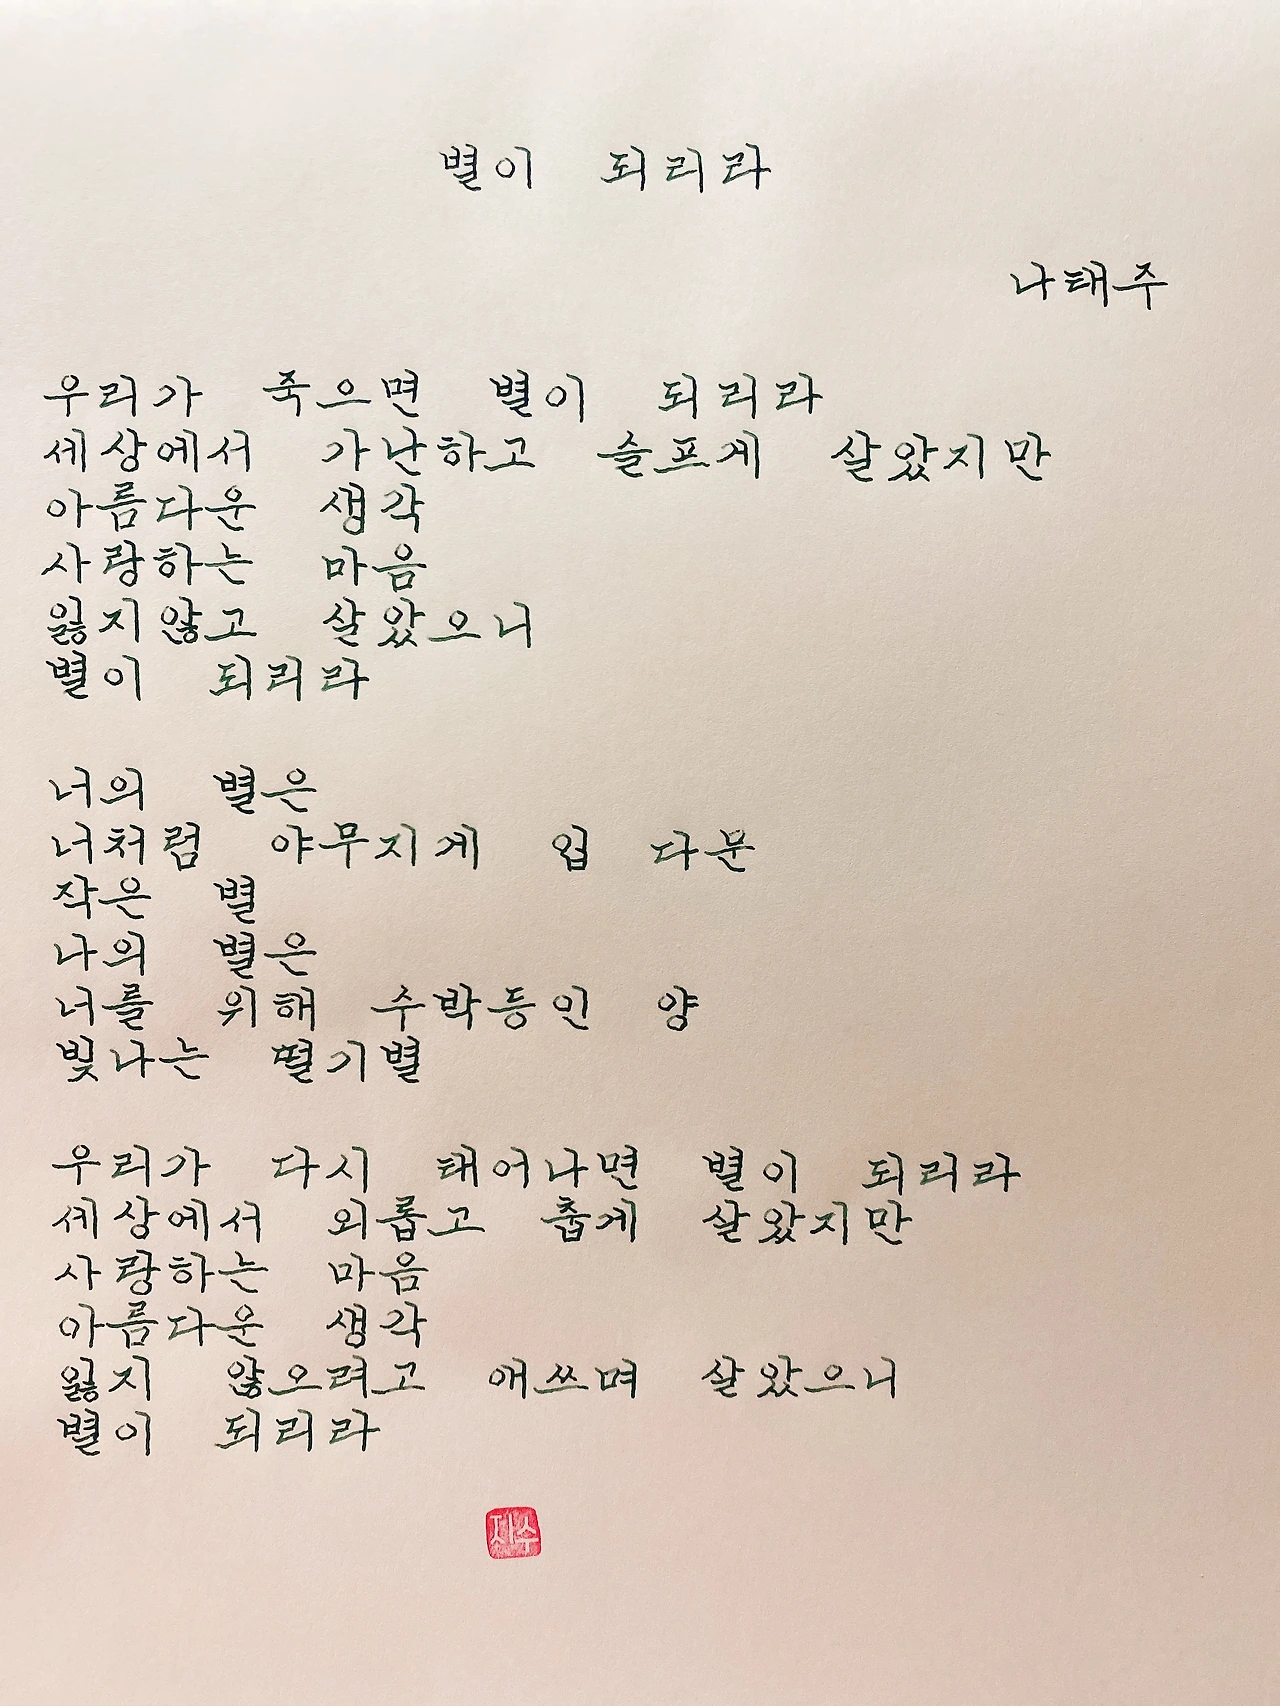 별이 되리라
나태주
우리가 죽으면 별이 되리라
세상에서 가난하고 슬프게 살았지만
아름다운 생각
사랑하는 마음
잃지않고 살았으니
별이 되리라
너의 별은
너처럼 야무지게 입 다문
작은 별
나의 별은
너를 위해 수박등인 양
빛나는 떨기별
우리가 다시 태어나면 별이 되리라
세상에서 외롭고 춥게 살았지만
사랑하는 마음
아름다운 생각
잃지 않으려고 애쓰며 살았으니
별이 되리라